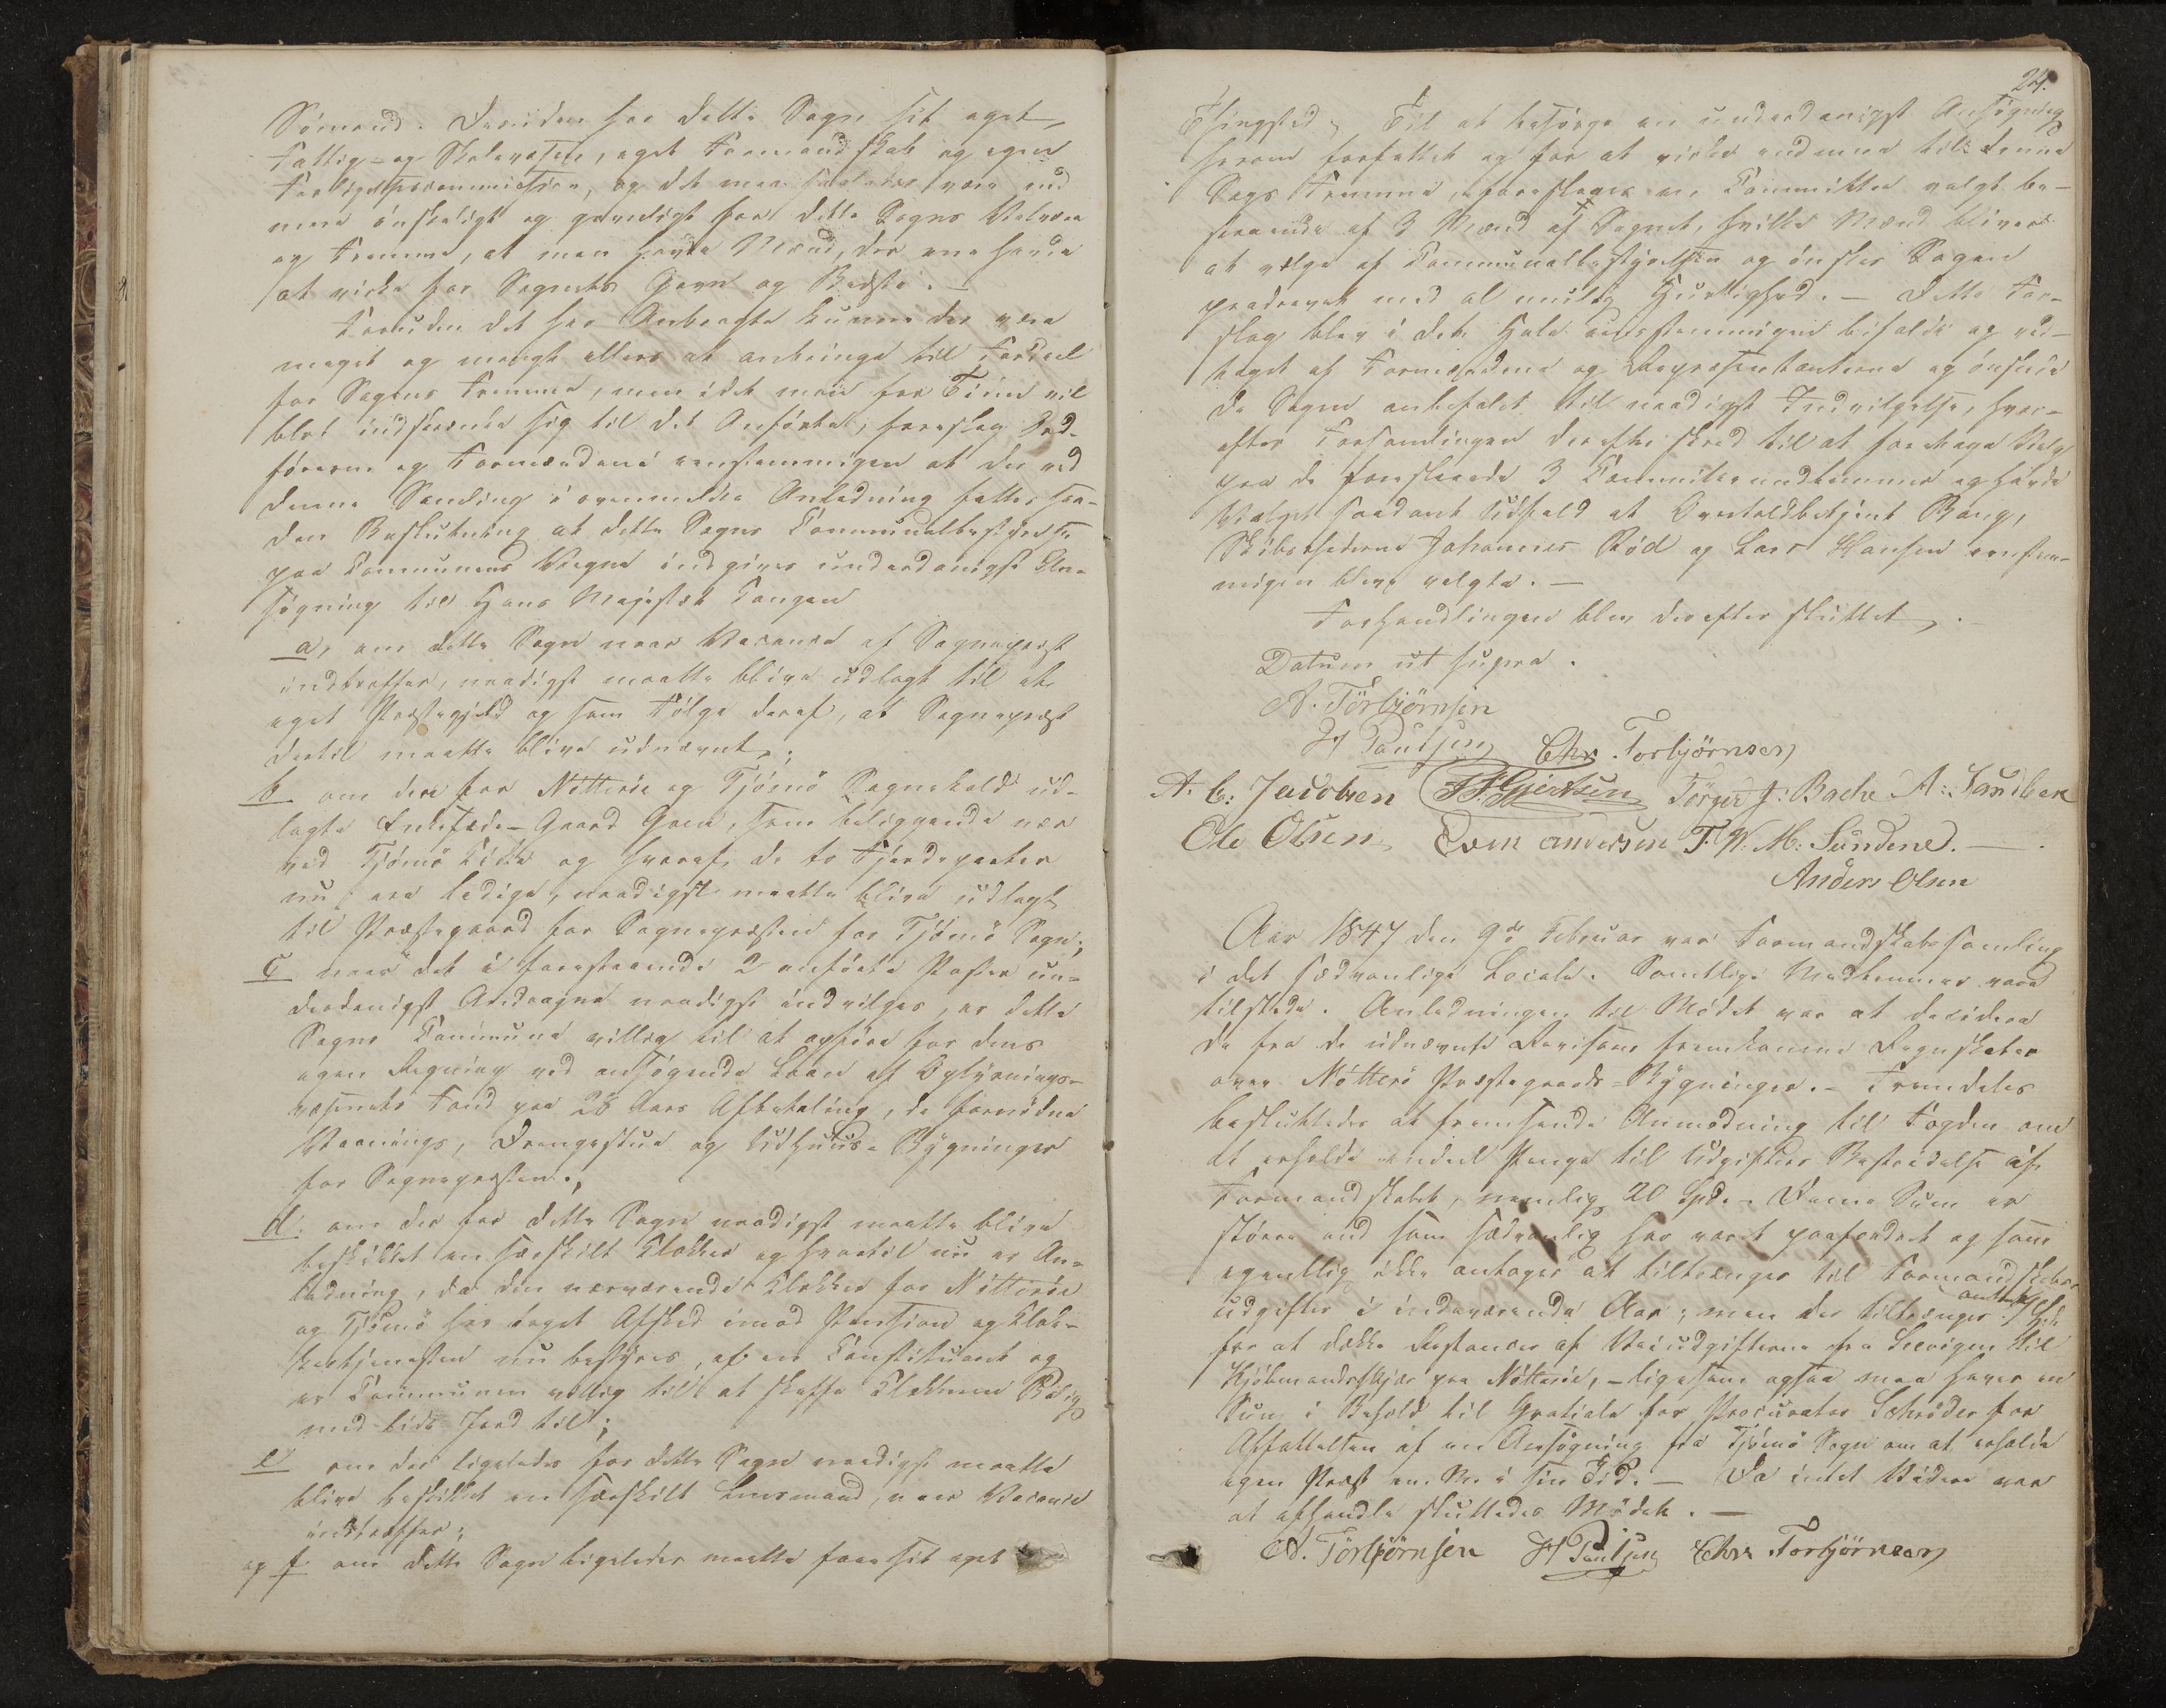 Sömænd. Desuden har dette Sogn sit eget
Fattig- og Skolevæsen, eget Formandskab og egen
Forligelsescommission, og det maa saaledes være end
mere önskeligt og gavnligt for dette Sogns Velvære
og Fremme, at man havde Mænd, der ene havde
at virke for Sognets Gavn og Bedste. —
Foruden det her Anbragte kunne der være
meget og mangt ellers at anbringe til Fordeel
for Sagens Fremme, men idet man for Tiden vil
blot indskrænke sig til det Anförte, foreslog Ord-
förerne og Formændene eenstemmigen at der ved
denne Samling i ovenmeldte Anledning fattes saa-
dan Beslutning at dette Sogns Communalbestyrelse
paa Communens Vegne indgiver underdanigst An-
sögning til Hans Majestæt Kongen
a, om dette Sogn naar Vacance af Sognepræst
indtræffer, naadigst maatte blive udlagt til et
eget Præstegjeld og som Fölge deraf, at Sognepræst
dertil maatte blive udnævnt;
b om den for Nötteröe og Tjömö Sognekald ud-
lagte Enkesæde-Gaard Græn, som beliggende nær
ved Tjömö Kirke og hvoraf de to Fjerdeparter
nu ere ledige, naadigst maatte blive udlagt
til Præstegaard for Sognepræsten for Tjömö Sogn;
c naar det i forestaaende 2 anförte Poster un-
derdanigst Andragne naadigst indvilges, er dette
Sogns Commune villig til at opföre for dens
egen Regning ved ansögende Laan af Oplysnings-
væsenets Fond paa 28 Aars Afbetaling, de fornödne
Vaanings, Drengestue og Udhuus-Bygninger
for Sognepræsten.;
d: om der for dette Sogn naadigst maatte blive
beskikket en særskilt Klokker og hvortil nu er An-
ledning, da den nærværende Klokker for Nötteröe
og Tjömö har taget Afsked imod Pension og Klok-
kertjenesten nu bestyres af en Constitueret og
er Communen villig til at skaffe Klokkeren Bolig
med lidt Jord til;
e om der ligeledes for dette Sogn naadigst maatte
blive beskikket en særskilt Lensmand, naar Vacance
indtræffer;
og f om dette Sogn ligeledes maatte faae sit eget
24.
Thingsted. Til at besörge en underdanigst Ansögning
herom forfattet og for at virke endmere til denne
Sags Fremme, foreslaaes en Committee valgt be-
staaende af 3 Mænd af Sognet, hvilke Mænd bliver
at vælge af Communalbestyrelsen og önskes Sagen
paadrevet med al mulig Hurtighed. — Dette For-
slag blev i det Hele eenstemmigen bifaldt og ved-
taget af Formændene og Repræsentanterne og önskede
de Sagen anbefalet til naadigst Indvilgelse, hvor-
efter Forsamlingen derefter skred til at foretage Valg
paa de foreslaaede 3 Committeemedlemmer og havde
Valget saadant Udfald at Overtoldbetjent Bang,
Skibsrhederne Johannes Röd og Lars Hansen eenstem-
migen bleve valgte. —
Forhandlingen blev derefter sluttet.
Datum ut supra.
A. Törbjörnsen
H Paulsen Chr. Torbjörnsen
A. C. Jacobsen Gjertsen Törger J: Bache A: Sandbæk
Ole Olsen Sven Andersen T. W. M: Sundene. —
Anders Olsen
Aar 1847 den 9de Februar var Formandskabssamling
i det sædvanlige Locale. Samtlige Medlemmer vare
tilstede. Anledningen til Mödet var at decidere
de fra de udnævnte Revisorer fremkomne Regnskaber
over Nötterö Præstegaards-Bygninger. – Fremdeles
besluttedes at fremsende Anmodning til Fogden om
at erholde endeel Penge til Udgifters Bestridelse af
Formandskabet, nemlig 20 Spd. – Denne Sum er
större end som sædvanlig har været paafordret og som
egentlig ikke antages at tiltrænges til Formandskabets
udgifter i indeværende Aar; men der tiltrænges
for at dække Restancer af Veiudgifterne fra Leevigen til
Kjöbmandsskjær paa Nötteröe, – ligesom ogsaa maa haves en
Sum i Behold til Gratiale for Procurator Schröder for
Affattelsen af en Ansögning fra Tjömö Sogn om at erholde
egen Præst m. M. i sin Tid. — Da intet Videre var
at afhandle sluttedes Mödet. —
A. Törbjörnsen H Paulsen Chr. Torbjörnsen